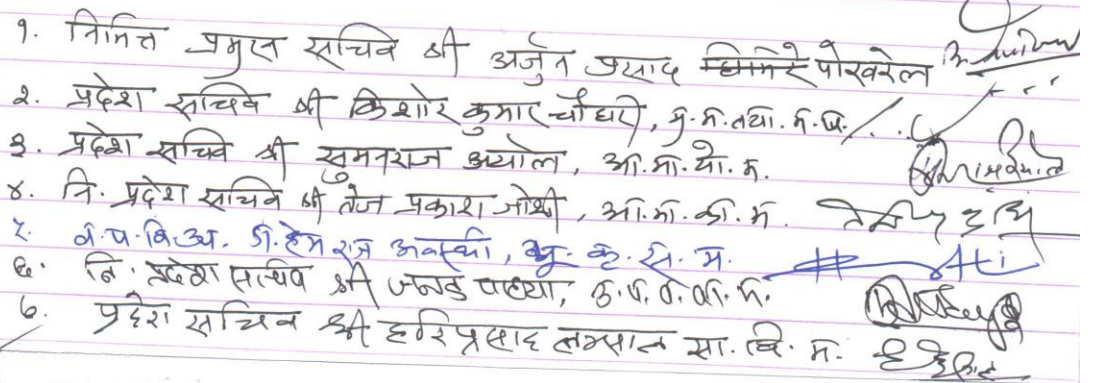 १. निमित्त प्रमुख सचिव श्री अर्जुन प्रसाद घिमिरे पोखरेल
२. प्रदेश सचिव श्री किशोर कुमार चौधरी, मु.म.तथा.म.प.
३. प्रदेश सचिव श्री सुमनराज अर्याल, आ.मा.यो.म.
४. नि. प्रदेश सचिव श्री तेज प्रकाश जोशी, आ.मा.वि.म.
५. व.प.बि.अ. डा.हेम राज अवस्थी, भू.कृ.स.म.
६. नि. प्रदेश सचिव श्री पाध्या, उ.प.व.वा.म.
७. प्रदेश सचिव श्री हरिप्रसाद लम्साल सा.वि.म.